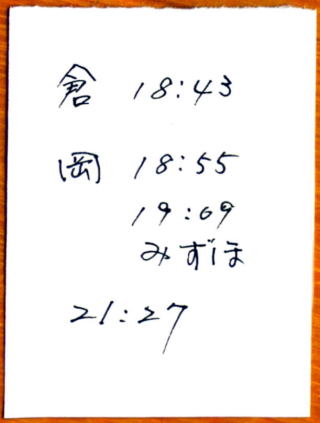 倉 18:43
岡 18:55
19:09
みずほ
21:27